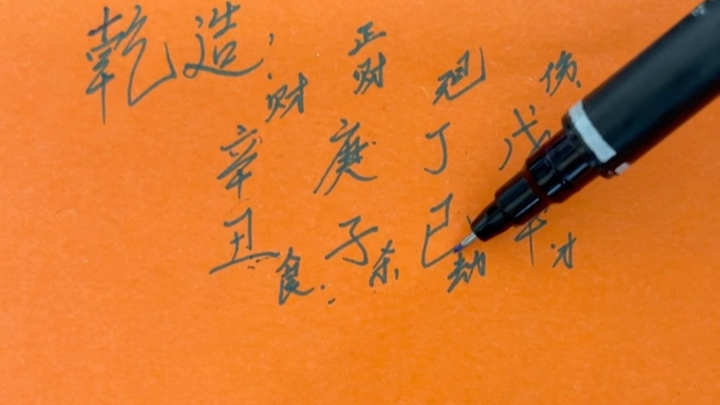 乾造:
财 正财 伤
辛 庚 丁 戊
丑 子 巳
食 杀 劫 才